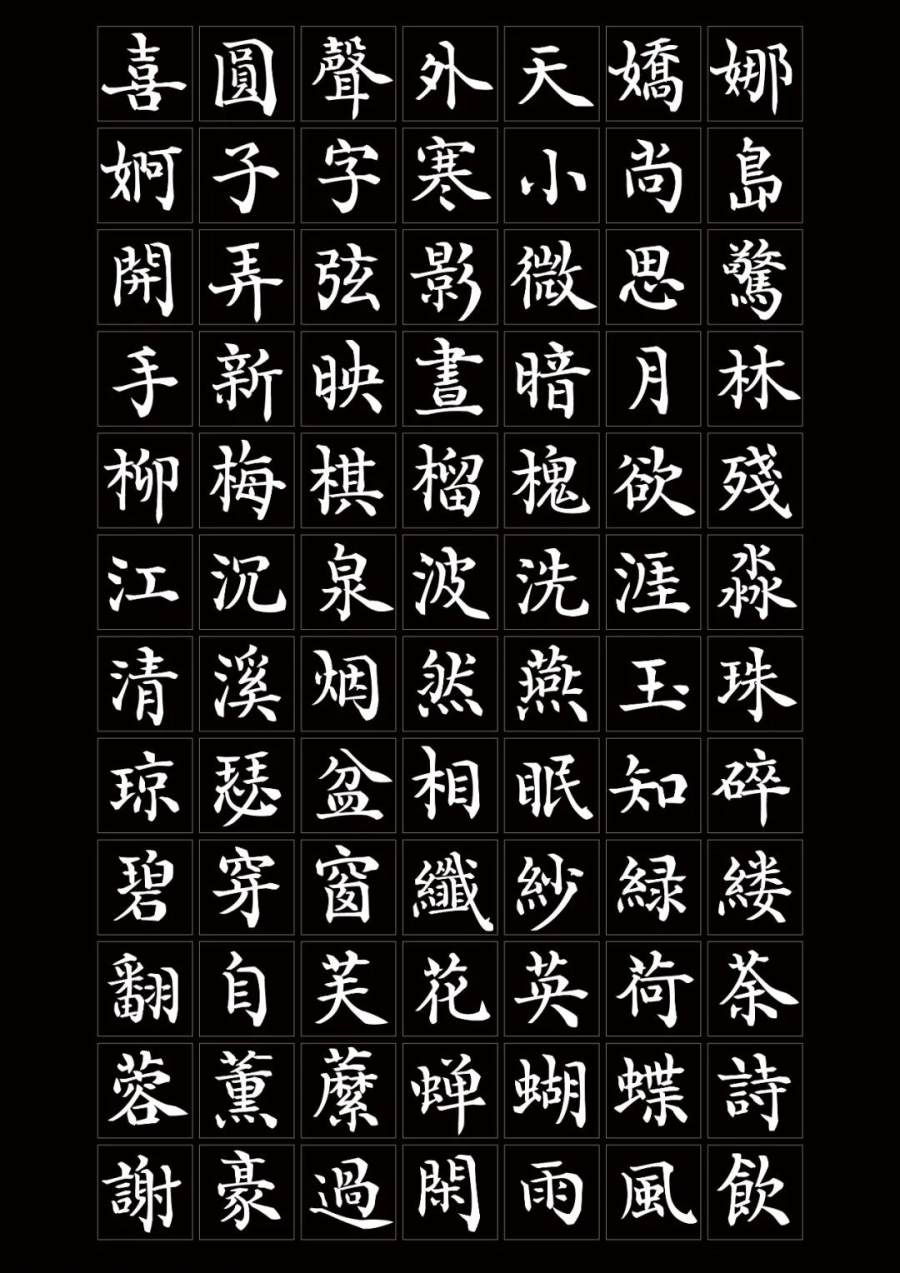 喜圓聲外天嬌娜
婀子字寒小尚島
開弄弦影微思驚
手新映晝暗月林
柳梅棋榴槐欲殘
江沉泉波洗涯淼
清溪烟然燕玉珠
琼瑟盆相眠知碎
碧穿窗纖紗緑缕
翻自芙花英荷荼
蓉薰蘪蝉蝴蝶詩
謝豪過閑雨風飲